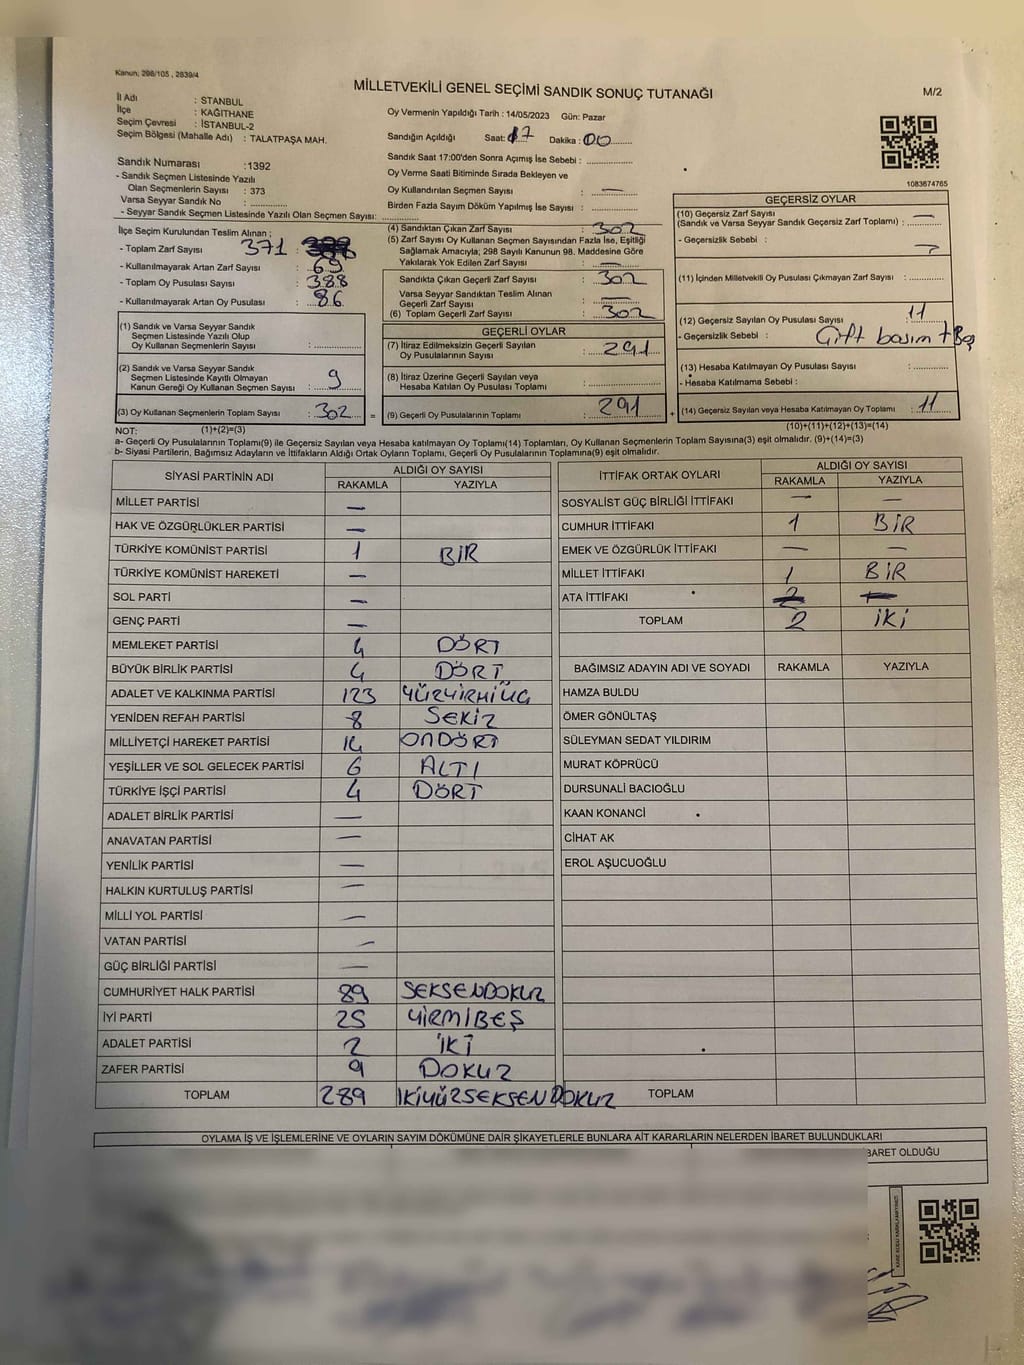 Kanun; 298/105 , 2839/4
MİLLETVEKİLİ GENEL SEÇİMİ SANDIK SONUÇ TUTANAĞI
M/2
İl Adı : STANBUL
İlçe : KAĞITHANE
Seçim Çevresi : İSTANBUL-2
Seçim Bölgesi (Mahalle Adı) : TALATPAŞA MAH.
Oy Vermenin Yapıldığı Tarih : 14/05/2023 Gün: Pazar
Sandığın Açıldığı Saat: 17 Dakika : 00
Sandık Saat 17:00'den Sonra Açımış İse Sebebi :
Oy Verme Saati Bitiminde Sırada Bekleyen ve
Oy Kullandırılan Seçmen Sayısı : —
Birden Fazla Sayım Döküm Yapılmış İse Sayısı :
1083674765
Sandık Numarası : 1392
- Sandık Seçmen Listesinde Yazılı
Olan Seçmenlerin Sayısı : 373
Varsa Seyyar Sandık No :
- Seyyar Sandık Seçmen Listesinde Yazılı Olan Seçmen Sayısı:
İlçe Seçim Kurulundan Teslim Alınan ;
- Toplam Zarf Sayısı 371 :
- Kullanılmayarak Artan Zarf Sayısı : 69
- Toplam Oy Pusulası Sayısı : 388
- Kullanılmayarak Artan Oy Pusulası : 86
(1) Sandık ve Varsa Seyyar Sandık
Seçmen Listesinde Yazılı Olup
Oy Kullanan Seçmenlerin Sayısı :
(2) Sandık ve Varsa Seyyar Sandık
Seçmen Listesinde Kayıtlı Olmayan
Kanun Gereği Oy Kullanan Seçmen Sayısı : 9
(3) Oy Kullanan Seçmenlerin Toplam Sayısı : 302 =
(4) Sandıktan Çıkan Zarf Sayısı : 302
(5) Zarf Sayısı Oy Kullanan Seçmen Sayısından Fazla İse, Eşitliği
Sağlamak Amacıyla; 298 Sayılı Kanunun 98. Maddesine Göre
Yakılarak Yok Edilen Zarf Sayısı : —
Sandıkta Çıkan Geçerli Zarf Sayısı : 302
Varsa Seyyar Sandıktan Teslim Alınan
Geçerli Zarf Sayısı : —
(6) Toplam Geçerli Zarf Sayısı : 302
GEÇERLİ OYLAR
(7) İtiraz Edilmeksizin Geçerli Sayılan
Oy Pusulalarının Sayısı : 291
(8) İtiraz Üzerine Geçerli Sayılan veya
Hesaba Katılan Oy Pusulası Toplamı :
(9) Geçerli Oy Pusulalarının Toplamı : 291 +
GEÇERSİZ OYLAR
(10) Geçersiz Zarf Sayısı : —
(Sandık ve Varsa Seyyar Sandık Geçersiz Zarf Toplamı) :
- Geçersizlik Sebebi :
(11) İçinden Milletvekili Oy Pusulası Çıkmayan Zarf Sayısı :
(12) Geçersiz Sayılan Oy Pusulası Sayısı : 11
- Geçersizlik Sebebi : Çift basım + Boş
(13) Hesaba Katılmayan Oy Pusulası Sayısı :
- Hesaba Katılmama Sebebi :
(14) Geçersiz Sayılan veya Hesaba Katılmayan Oy Toplamı : 11
NOT: (1)+(2)=(3)
(10)+(11)+(12)+(13)=(14)
a- Geçerli Oy Pusulalarının Toplamı(9) ile Geçersiz Sayılan veya Hesaba katılmayan Oy Toplamı(14) Toplamları, Oy Kullanan Seçmenlerin Toplam Sayısına(3) eşit olmalıdır. (9)+(14)=(3)
b- Siyasi Partilerin, Bağımsız Adayların ve İttifakların Aldığı Ortak Oyların Toplamı, Geçerli Oy Pusulalarının Toplamına(9) eşit olmalıdır.
SİYASİ PARTİNİN ADI ALDIĞI OY SAYISI
RAKAMLA YAZIYLA
MİLLET PARTİSİ —
HAK VE ÖZGÜRLÜKLER PARTİSİ —
TÜRKİYE KOMÜNİST PARTİSİ 1 BİR
TÜRKİYE KOMÜNİST HAREKETİ —
SOL PARTİ —
GENÇ PARTİ —
MEMLEKET PARTİSİ 4 DÖRT
BÜYÜK BİRLİK PARTİSİ 4 DÖRT
ADALET VE KALKINMA PARTİSİ 123 YÜZYİRMİÜÇ
YENİDEN REFAH PARTİSİ 8 SEKİZ
MİLLİYETÇİ HAREKET PARTİSİ 14 ONDÖRT
YEŞİLLER VE SOL GELECEK PARTİSİ 6 ALTI
TÜRKİYE İŞÇİ PARTİSİ 4 DÖRT
ADALET BİRLİK PARTİSİ —
ANAVATAN PARTİSİ —
YENİLİK PARTİSİ —
HALKIN KURTULUŞ PARTİSİ —
MİLLİ YOL PARTİSİ —
VATAN PARTİSİ —
GÜÇ BİRLİĞİ PARTİSİ —
CUMHURİYET HALK PARTİSİ 89 SEKSENDOKUZ
İYİ PARTİ 25 YİRMİBEŞ
ADALET PARTİSİ 2 İKİ
ZAFER PARTİSİ 9 DOKUZ
TOPLAM 289 İKİYÜZSEKSENDOKUZ
İTTİFAK ORTAK OYLARI ALDIĞI OY SAYISI
RAKAMLA YAZIYLA
SOSYALİST GÜÇ BİRLİĞİ İTTİFAKI — —
CUMHUR İTTİFAKI 1 BİR
EMEK VE ÖZGÜRLÜK İTTİFAKI — —
MİLLET İTTİFAKI 1 BİR
ATA İTTİFAKI 2 —
TOPLAM 2 İKİ
BAĞIMSIZ ADAYIN ADI VE SOYADI RAKAMLA YAZIYLA
HAMZA BULDU
ÖMER GÖNÜLTAŞ
SÜLEYMAN SEDAT YILDIRIM
MURAT KÖPRÜCÜ
DURSUNALİ BACIOĞLU
KAAN KONANCİ
CİHAT AK
EROL AŞUCUOĞLU
TOPLAM
OYLAMA İŞ VE İŞLEMLERİNE VE OYLARIN SAYIM DÖKÜMÜNE DAİR ŞİKAYETLERLE BUNLARA AİT KARARLARIN NELERDEN İBARET BULUNDUKLARI
BARET OLDUĞU